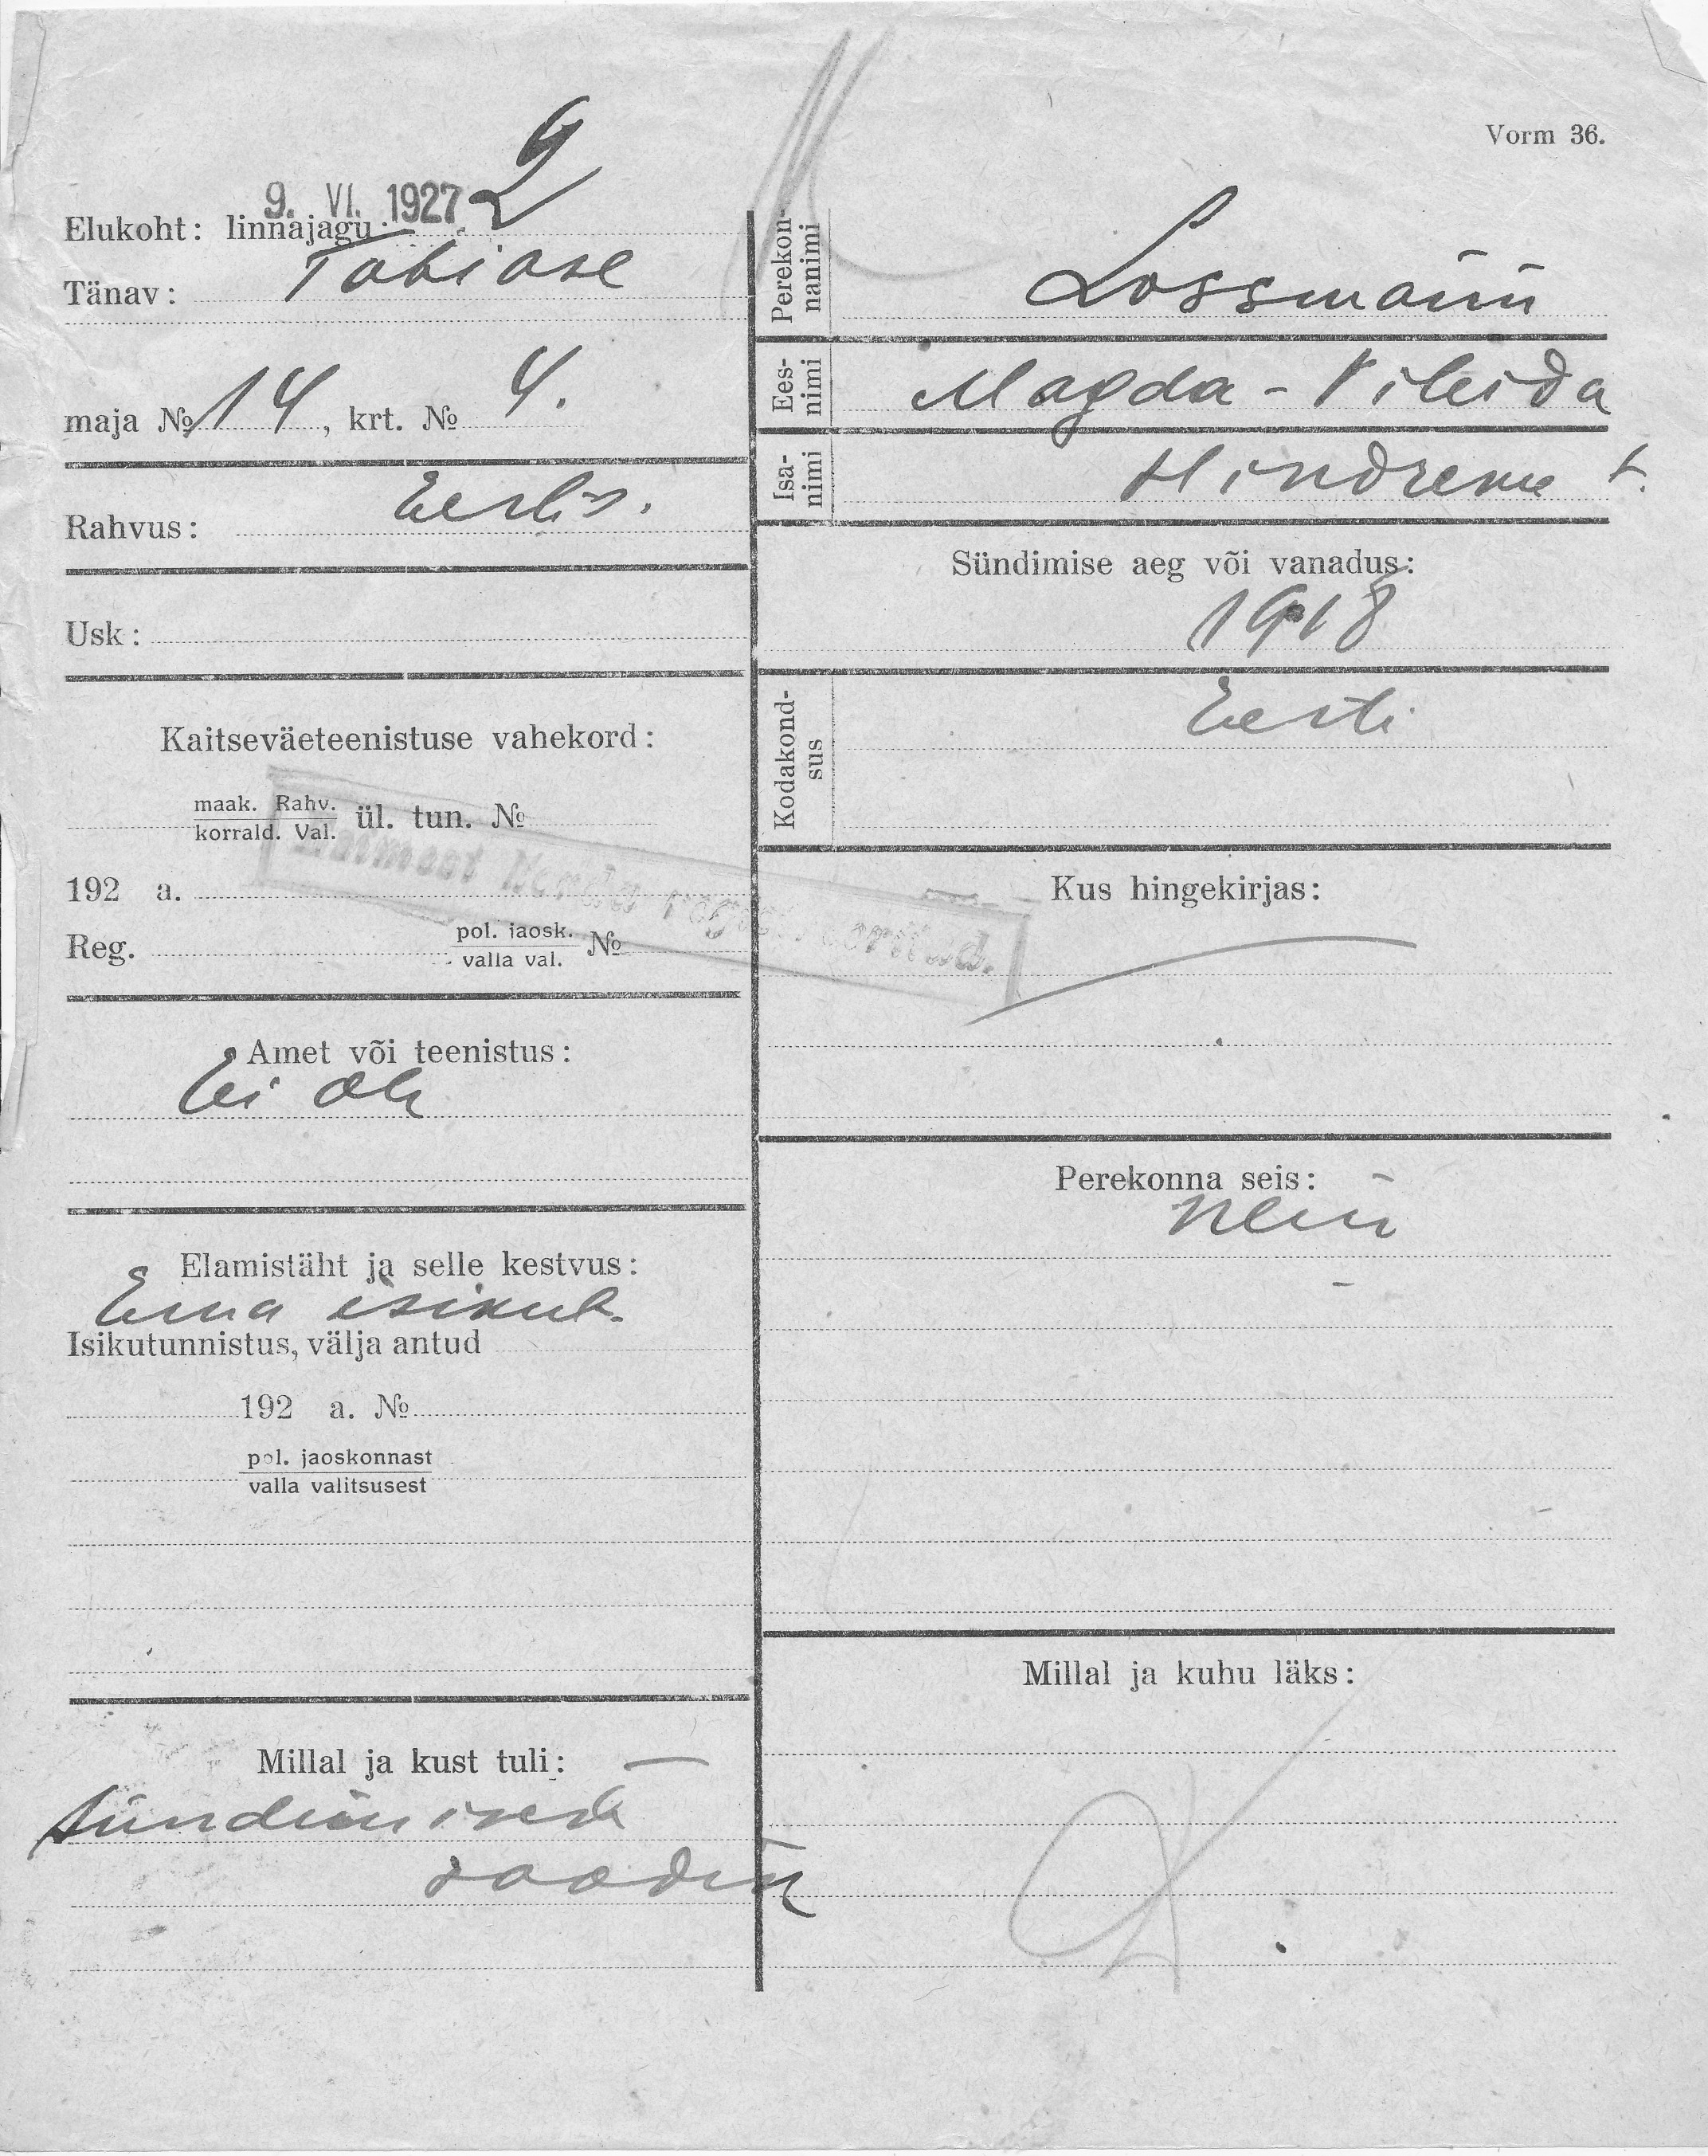 Vorm 36.
9. VI. 1927
2
Elukoht: linnajagu:
Tänav: Tobiase
maja № 14, krt. № 4.
Rahvus: Eestis.
Usk:
Kaitseväeteenistuse vahekord:
maak. Rahv.
korrald. Val.
ül. tun. №
192 a.
Reg.
pol. jaosk.
valla val.
№
Amet või teenistus:
Ei ole
Elamistäht ja selle kestvus:
Ema isikut.
Isikutunnistus, välja antud
192 a. №
pol. jaoskonnast
valla valitsusest
Millal ja kust tuli:
sündimisest
saadik
Perekon-
nanimi
Lossmann
Ees-
nimi
Magda-
Isa-
nimi
Hindreku t.
Sündimise aeg või vanadus:
1918
Kodakond-
sus
Eesti
Esimest korda registreeritud.
Kus hingekirjas:
Perekonna seis:
Neiu
Millal ja kuhu läks: